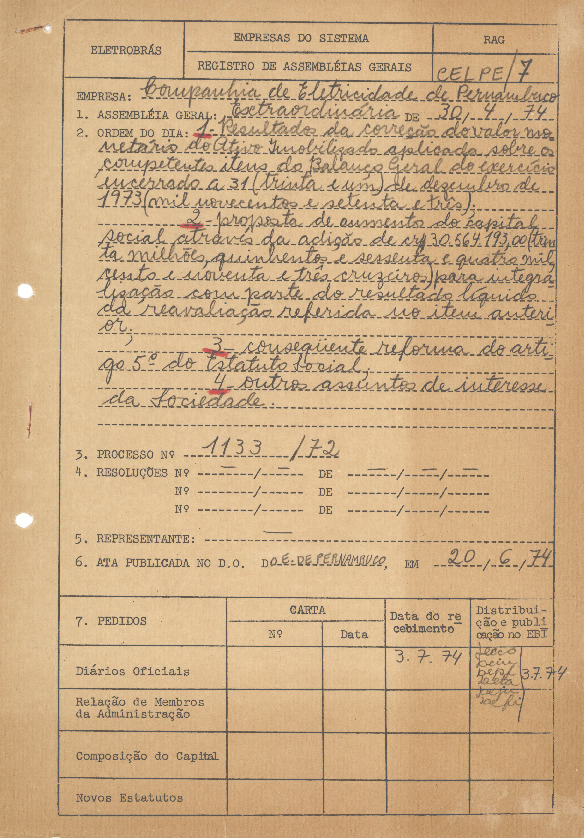 ELETROBRÁS
EMPRESAS DO SISTEMA
RAG
REGISTRO DE ASSEMBLÉIAS GERAIS
CELPE/7
EMPRESA: Companhia de Eletricidade de Pernambuco
1. ASSEMBLÉIA GERAL: Extraordinária DE 30/4/74
2. ORDEM DO DIA: 1- Resultados da correção do valor mo-
netário do Ativo Imobilizado aplicado sobre os
competentes itens do Balanço Geral do exercício
encerrado a 31 (trinta e um) de dezembro de
1973 (mil novecentos e setenta e três);
2- proposta de aumento do capital
social através da adição de cr$ 30.564.193,00 (trin
ta milhões, quinhentos e sessenta e quatro mil,
cento e noventa e três cruzeiros) para integra
lização com parte do resultado líquido
da reavaliação referida no item anteri-
or;
3- conseqüente reforma do arti-
go 5º do Estatuto Social;
4- outros assuntos de interesse
da Sociedade.
3. PROCESSO Nº 1133/72
4. RESOLUÇÕES Nº — / — DE — / — / —
Nº / DE / /
Nº / DE / /
5. REPRESENTANTE: —
6. ATA PUBLICADA NO D.O. DO E. DE PERNAMBUCO, EM 20/6/74
7. PEDIDOS
CARTA
Nº
Data
Data do re
cebimento
Distribui-
ção e publi
cação no EBI
Diários Oficiais
3.7.74
3.7.74
Relação de Membros
da Administração
Composição do Capital
Novos Estatutos